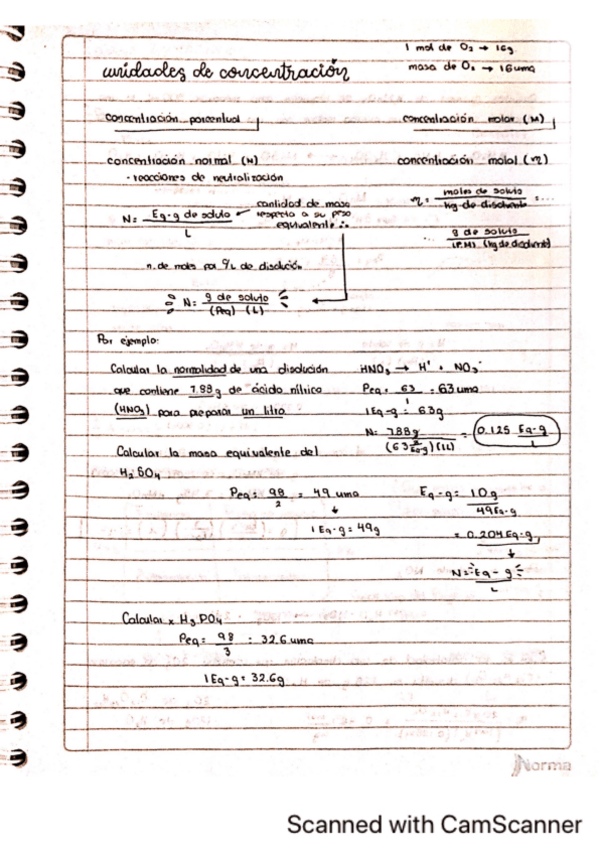 1 mol de O₂ → 16g
masa de O₂ → 16 uma
unidades de concentración
concentración porcentual
concentración molar (M)
concentración normal (N)
concentración molal (m)
- reacciones de neutralización
N= Eq-g de soluto / L
cantidad de masa respecto a su peso equivalente ∴
m = moles de soluto / kg de disolvente = ...
... g de soluto / (P.M) (kg de disolvente)
n. de moles por L de disolución
N= g de soluto / (Peq) (L)
Por ejemplo:
Calcular la normalidad de una disolución
que contiene 7.88g de ácido nítrico
(HNO₃) para preparar un litro
HNO₃ → H⁺ + NO₃⁻
Peq = 63 / 1 = 63 uma
1 Eq-g = 63g
N= 7.88g / (63 g/Eq-g) (1L) = 0.125 Eq-g / L
Calcular la masa equivalente del
H₂SO₄
Peq = 98 / 2 = 49 uma
↓
1 Eq-g = 49g
Eq-g = 10g / 49Eq-g
= 0.204 Eq-g
↓
N= Eq-g / L
Calcular x H₃PO₄
Peq = 98 / 3 = 32.6 uma
1 Eq-g = 32.6g
Norma
Scanned with CamScanner